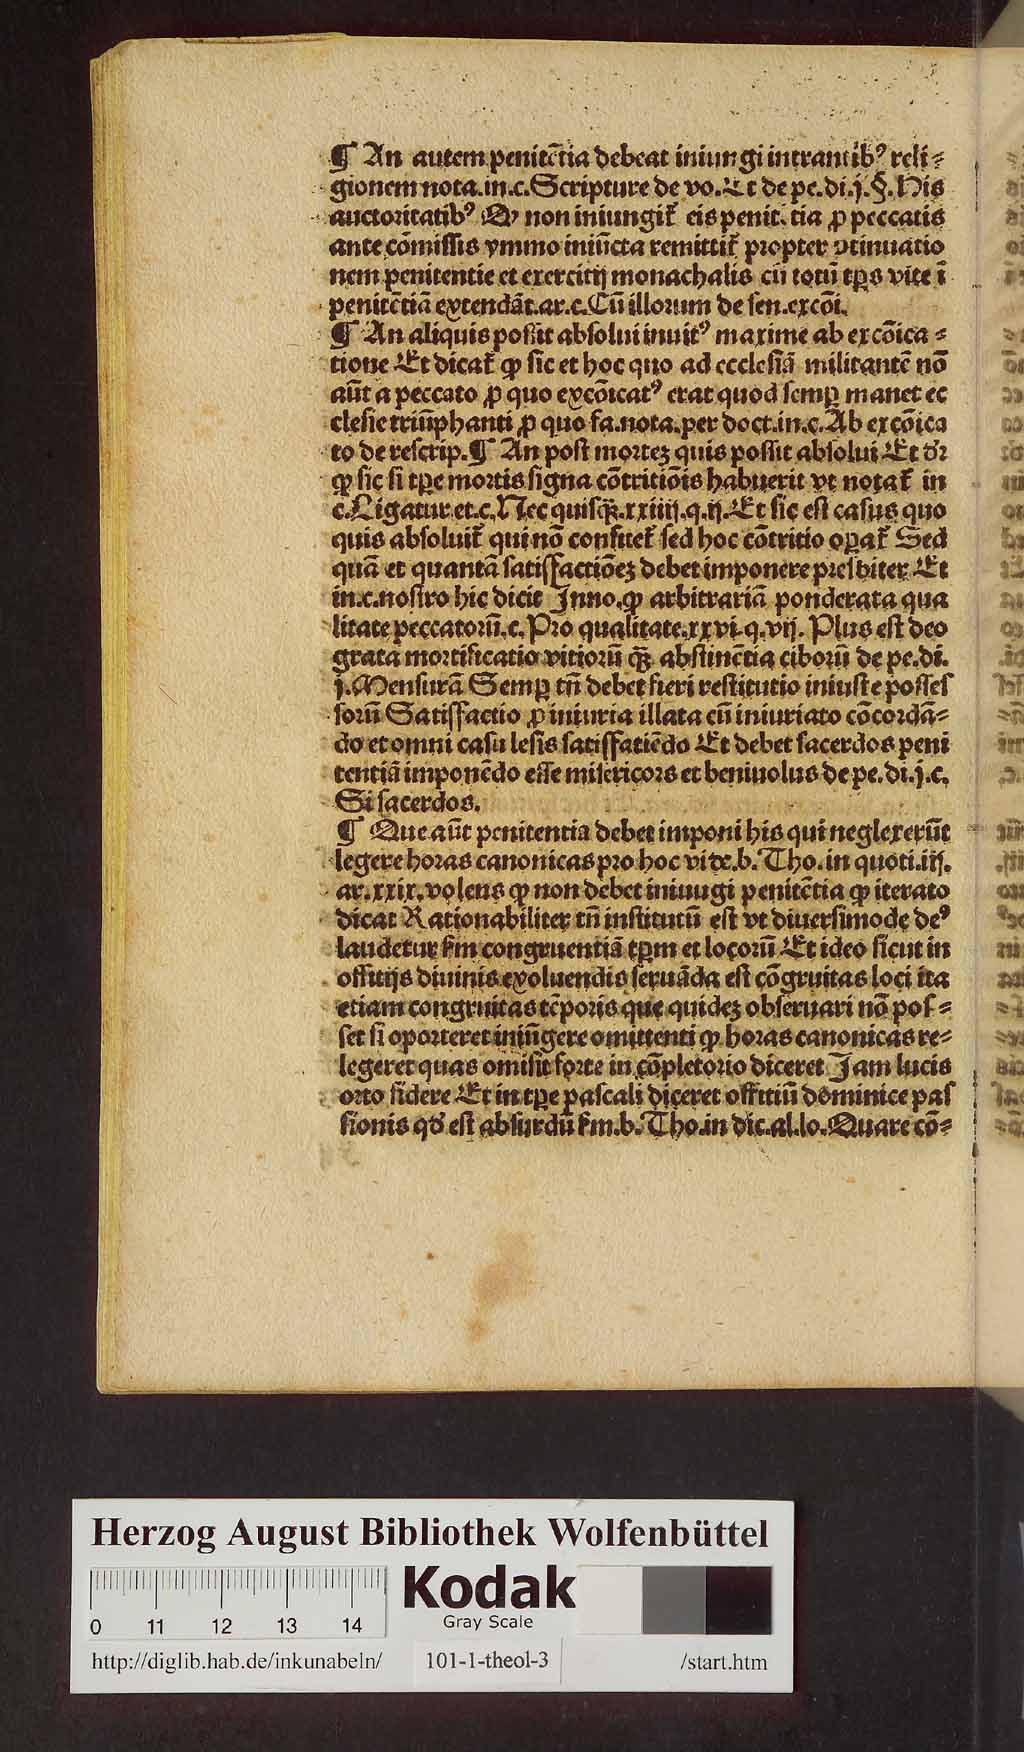 ¶ An autem penitẽtia debeat iniungi intrantibꝰ reli⸗
gionem nota.in.c.Scripture de vo.Et de pe.di.j.§.His
auctoritatibꝰ Ꝙ non iniungit̃ eis penit.tia ꝓ peccatis
ante cõmissis ymmo iniũcta remittit̃ propter ꝯtinuatio
nem penitentie et exercitij monachalis cũ totũ tp̃s vite ĩ
penitẽtiã extendãt.ar.c.Cũ illorum de sen.excõi.
¶ An aliquis possit absolui inuitꝰ maxime ab excõica⸗
tione Et dicat̃ ꝙ sic et hoc quo ad ecclesiã militantẽ nõ
aũt a peccato ꝓ quo excõicatꝰ erat quod semꝑ manet ec
clesie triũphanti ꝓ quo fa.nota.per doct.in.c.Ab excõica
to de rescrip.¶ An post mortez quis possit absolui Et dr̃
ꝙ sic si tꝑe mortis signa cõtritiõis habuerit vt notat̃ in
c.Ligatur.et.c.Nec quisq̃.xxiiij.q.ij.Et sic est casus quo
quis absoluit̃ qui nõ confitet̃ sed hoc cõtritio oꝑat̃ Sed
quã et quantã satisfactiõez debet imponere presbiter Et
in.c.nostro hic dicit Inno.ꝙ arbitrariã ponderata qua
litate peccatorũ.c.Pro qualitate.xxvi.q.vij. Plus est deo
grata mortificatio vitiorũ q̃ꝫ abstinẽtia ciborũ de pe.di.
j.Mensurã Semꝑ tñ debet fieri restitutio iniuste posses
sorũ Satisfactio ꝓ iniuria illata cũ iniuriato cõcordã⸗
do et omni casu lesis satisfatiẽdo Et debet sacerdos peni
tentiã imponẽdo esse misericors et beniuolus de pe.di.j.c.
Si sacerdos.
¶ Que aũt penitentia debet imponi his qui neglexerũt
legere horas canonicas pro hoc vide.b.Tho.in quoti.iij.
ar.xxix.volens ꝙ non debet iniuugi penitẽtia ꝙ iterato
dicat Rationabiliter tñ institutũ est vt diuersimode deꝰ
laudetur ẜm congruentiã tꝑm et locorũ Et ideo sicut in
offitijs diuinis exoluendis seruãda est cõgruitas loci ita
etiam congruitas tẽporis que quidez obseruari nõ pos⸗
set si oporteret iniũgere omittenti ꝙ horas canonicas re⸗
legeret quas omisit forte in cõpletorio diceret Iam lucis
orto sidere Et in tꝑe pascali diceret offitiũ dominice pas
sionis qd̃ est absurdũ ẜm.b.Tho.in dic.al.lo.Quare cõ⸗
Herzog August Bibliothek Wolfenbüttel
Kodak
Gray Scale
0 11 12 13 14
http://diglib.hab.de/inkunabeln/ 101-1-theol-3 /start.htm